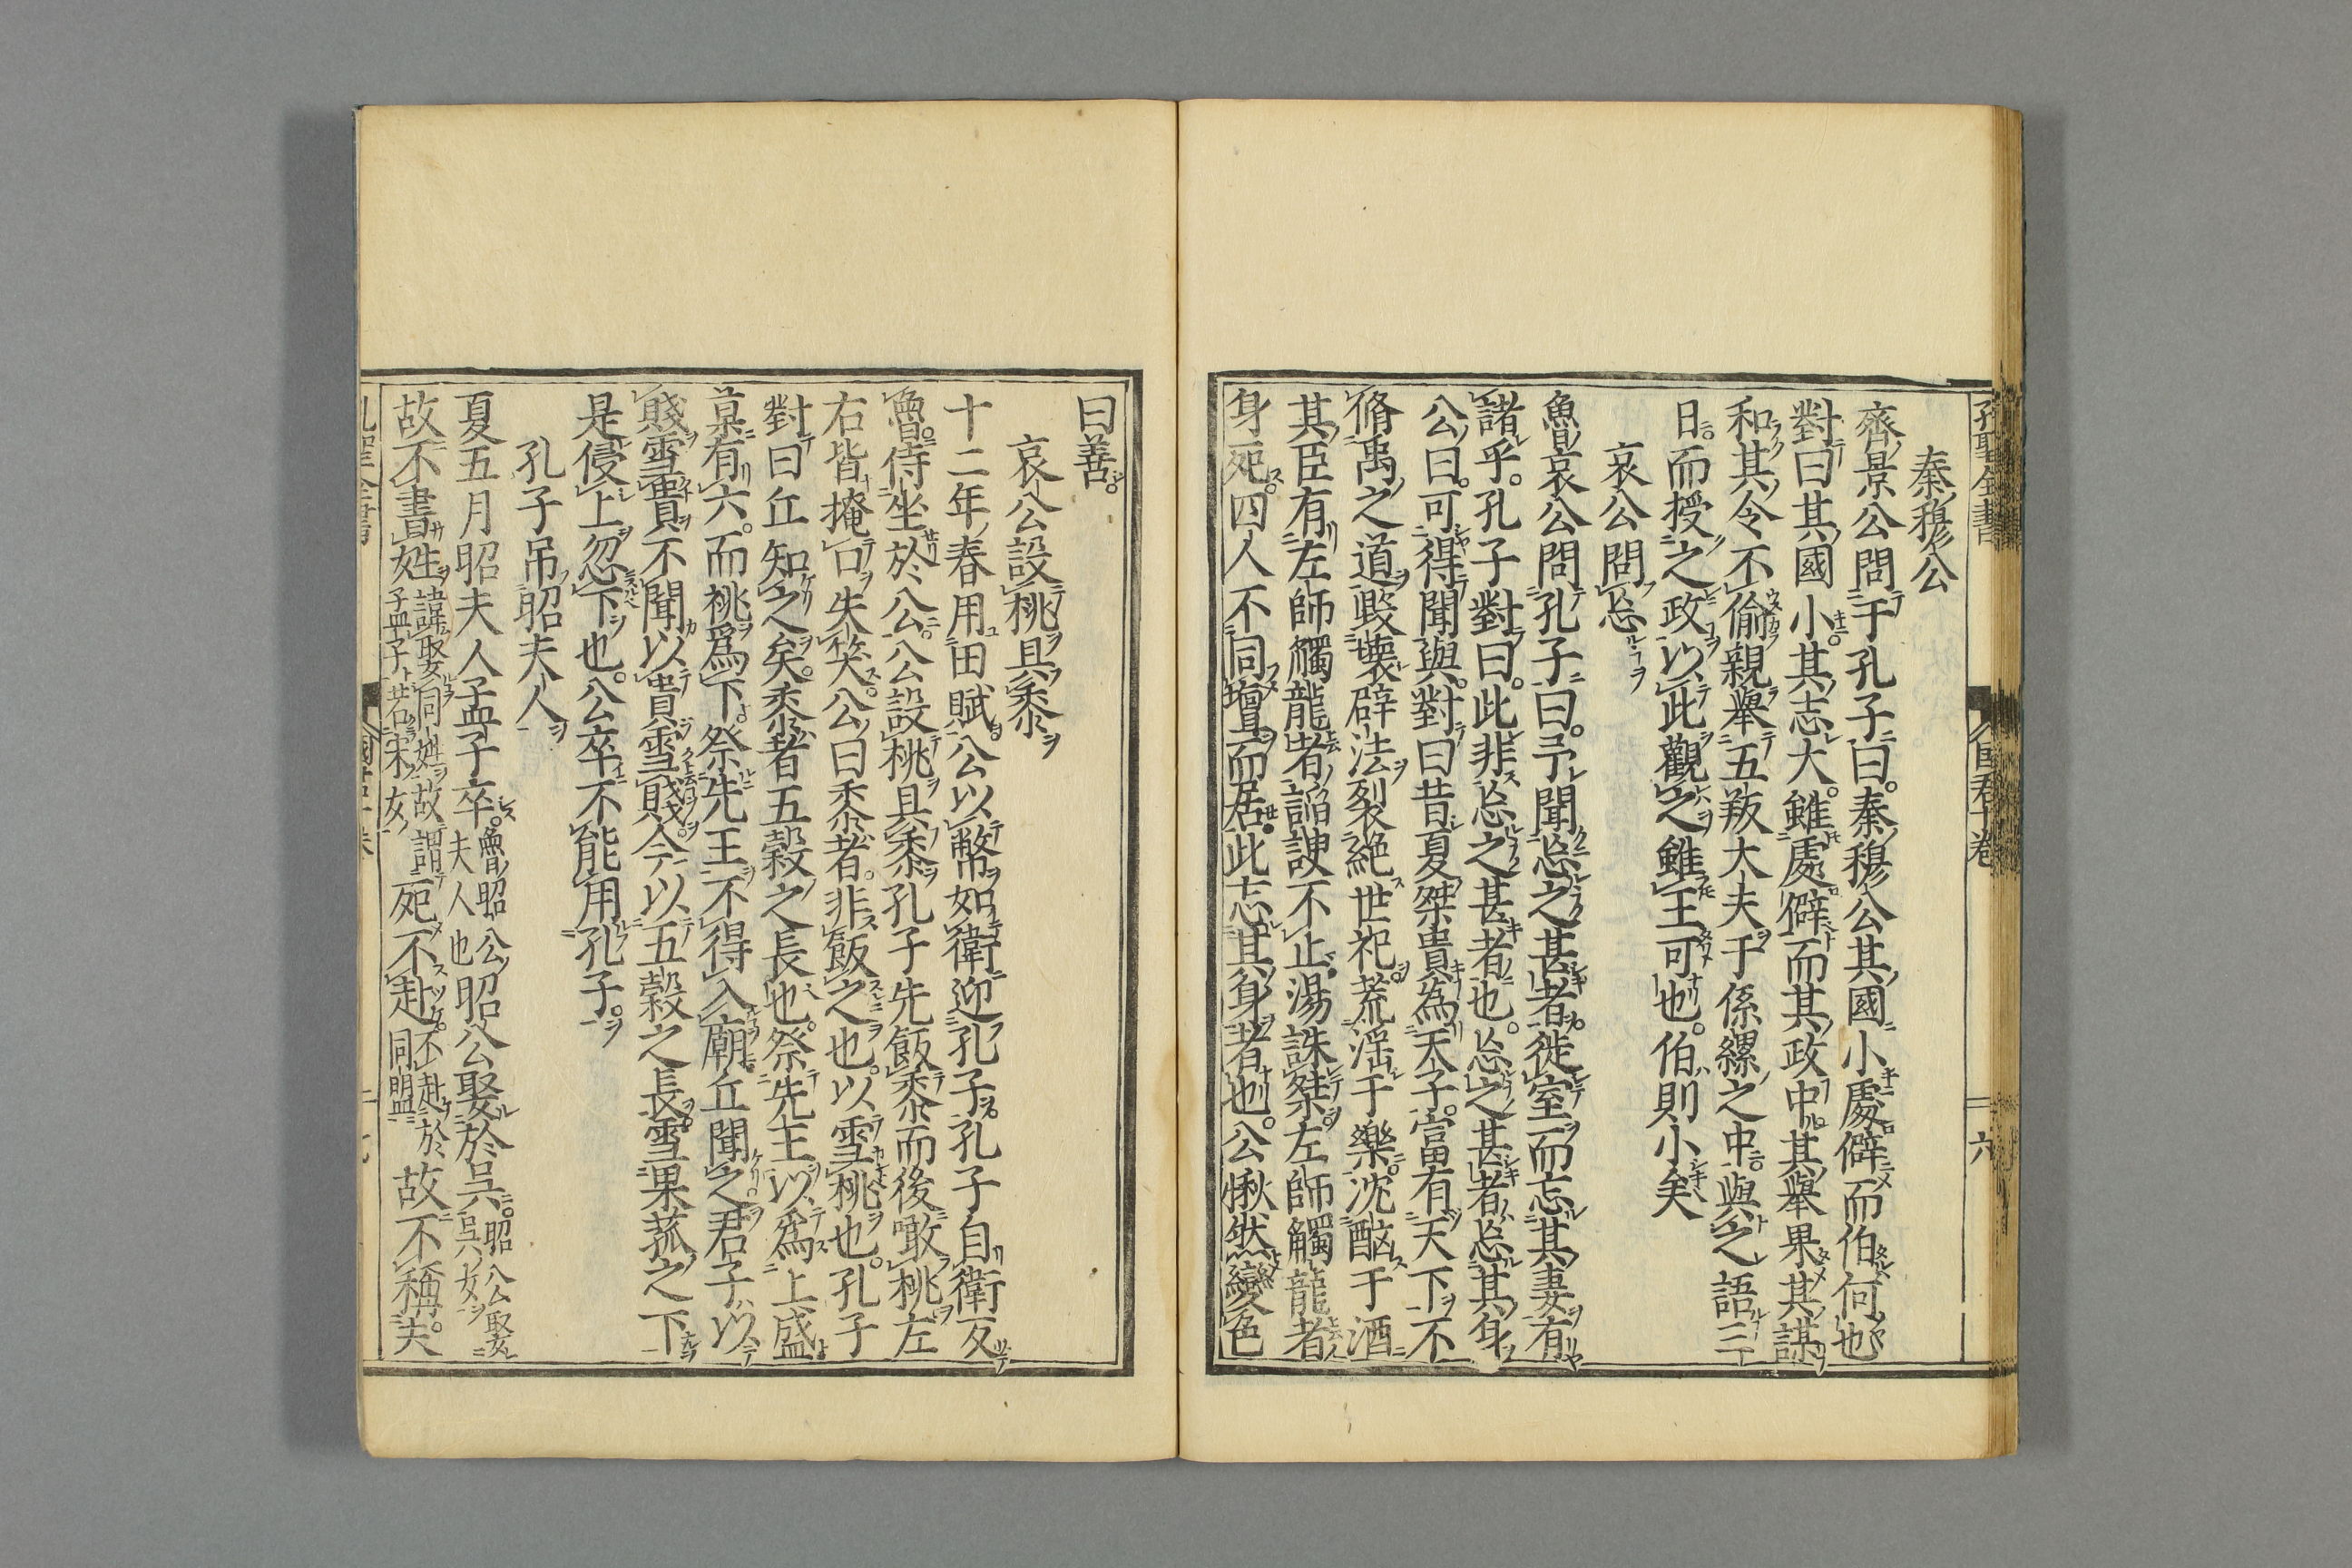 孔聖全書
國君十卷
六
秦穆公
齊景公問于孔子曰秦穆公其國小處僻而伯何也
對曰其國小其志大雖處僻而其政中其舉果其謀
和其令不偷親舉五羖大夫于係縲之中與之語三
日而授之政以此觀之雖王可也伯則小矣
哀公問忘
魯哀公問孔子曰予聞忘之甚者徙室而忘其妻有
諸乎孔子對曰此非忘之甚者也忘之甚者忘其身
公曰可得聞與對曰昔夏桀貴為天子富有天下不
脩禹之道毀壞辟法裂絕世祀荒淫于樂沈酗于酒
其臣有左師觸龍者諂諛不止湯誅桀左師觸龍者
身死四人不同壇而居此忘其身者也公愀然變色
曰善
哀公設桃具黍
十二年春用田賦公以幣如衛迎孔子孔子自衛反
魯侍坐於公公設桃具黍孔子先飯黍而後噉桃左
右皆掩口失笑公曰黍者非飯之也以雪桃也孔子
對曰丘知之矣黍者五穀之長也祭先王以為上盛
菓有六而桃為下祭先王不得入廟丘聞之君子以
賤雪貴不聞以貴雪賤今以五穀之長雪果菰之下
是侵上忽下也公卒不能用孔子
孔子吊昭夫人
夏五月昭夫人孟子卒魯昭公夫人也昭公娶於吳昭公娶吳女
故不書姓諱娶同姓故謂孟子若宋女死不赴不赴於同盟故不稱夫